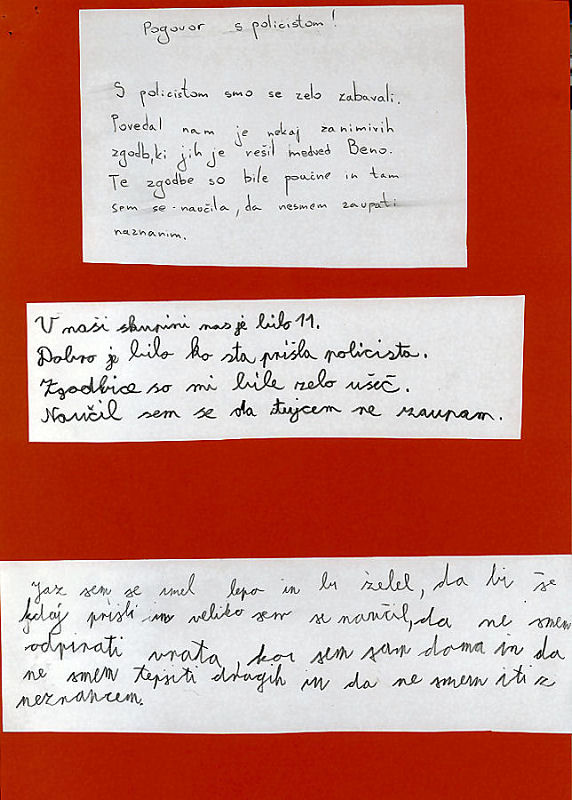 Pogovor s policistom!
S policistom smo se zelo zabavali.
Povedal nam je nekaj zanimivih
zgodb, ki jih je rešil medved Beno.
Te zgodbe so bile poučne in tam
sem se naučila, da nesmem zaupati
naznanim.
V naši skupini nas je bilo 11.
Dobro je bilo ko sta prišla policista.
Zgodbice so mi bile zelo ušeč.
Naučil sem se da tujcem ne zaupam.
Jaz sem se imel lepo in bi želel, da bi še
kdaj prišli in veliko sem se naučil, da ne smem
odpirati vrata, kor sem sam doma in da
ne smem tepsti drugih in da ne smem iti z
neznancem.